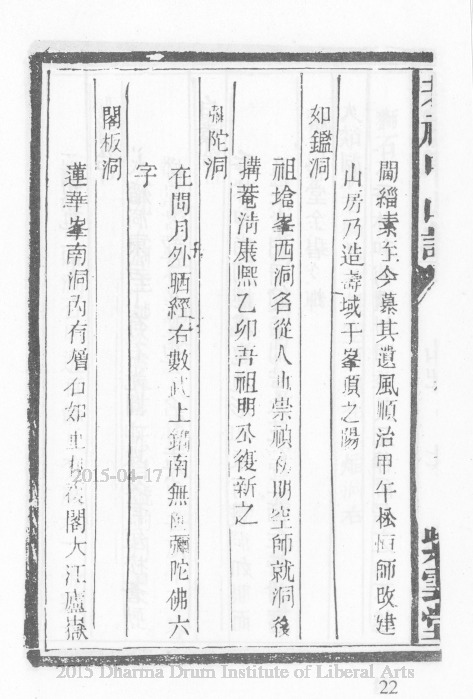 間緇素至今慕其遺風順治甲午松恒師改建
山房乃造壽域于峯頂之陽
如鑑洞
祖塔峯西洞名從人也崇禎初明空師就洞後
搆菴淸康熙乙卯吾祖明丕復新之
彌陀洞
在問月外晒經右數武上鐫南無阿彌陀佛六
字
閣板洞
蓮華峯南洞內有僧石如
閣大江廬嶽
山
紫雲堂
2015-04-17
2015 Dharma Drum Institute of Liberal Arts
22